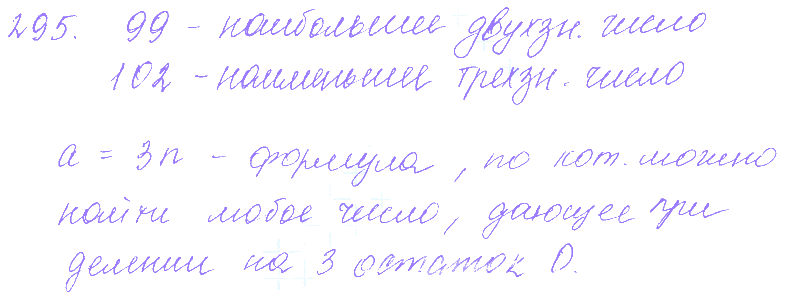 295. 99 - наибольшее двухзн. число
102 - наименьшее трехзн. число
a = 3n - формула, по кот. можно
найти любое число, дающее при
делении на 3 остаток 0.